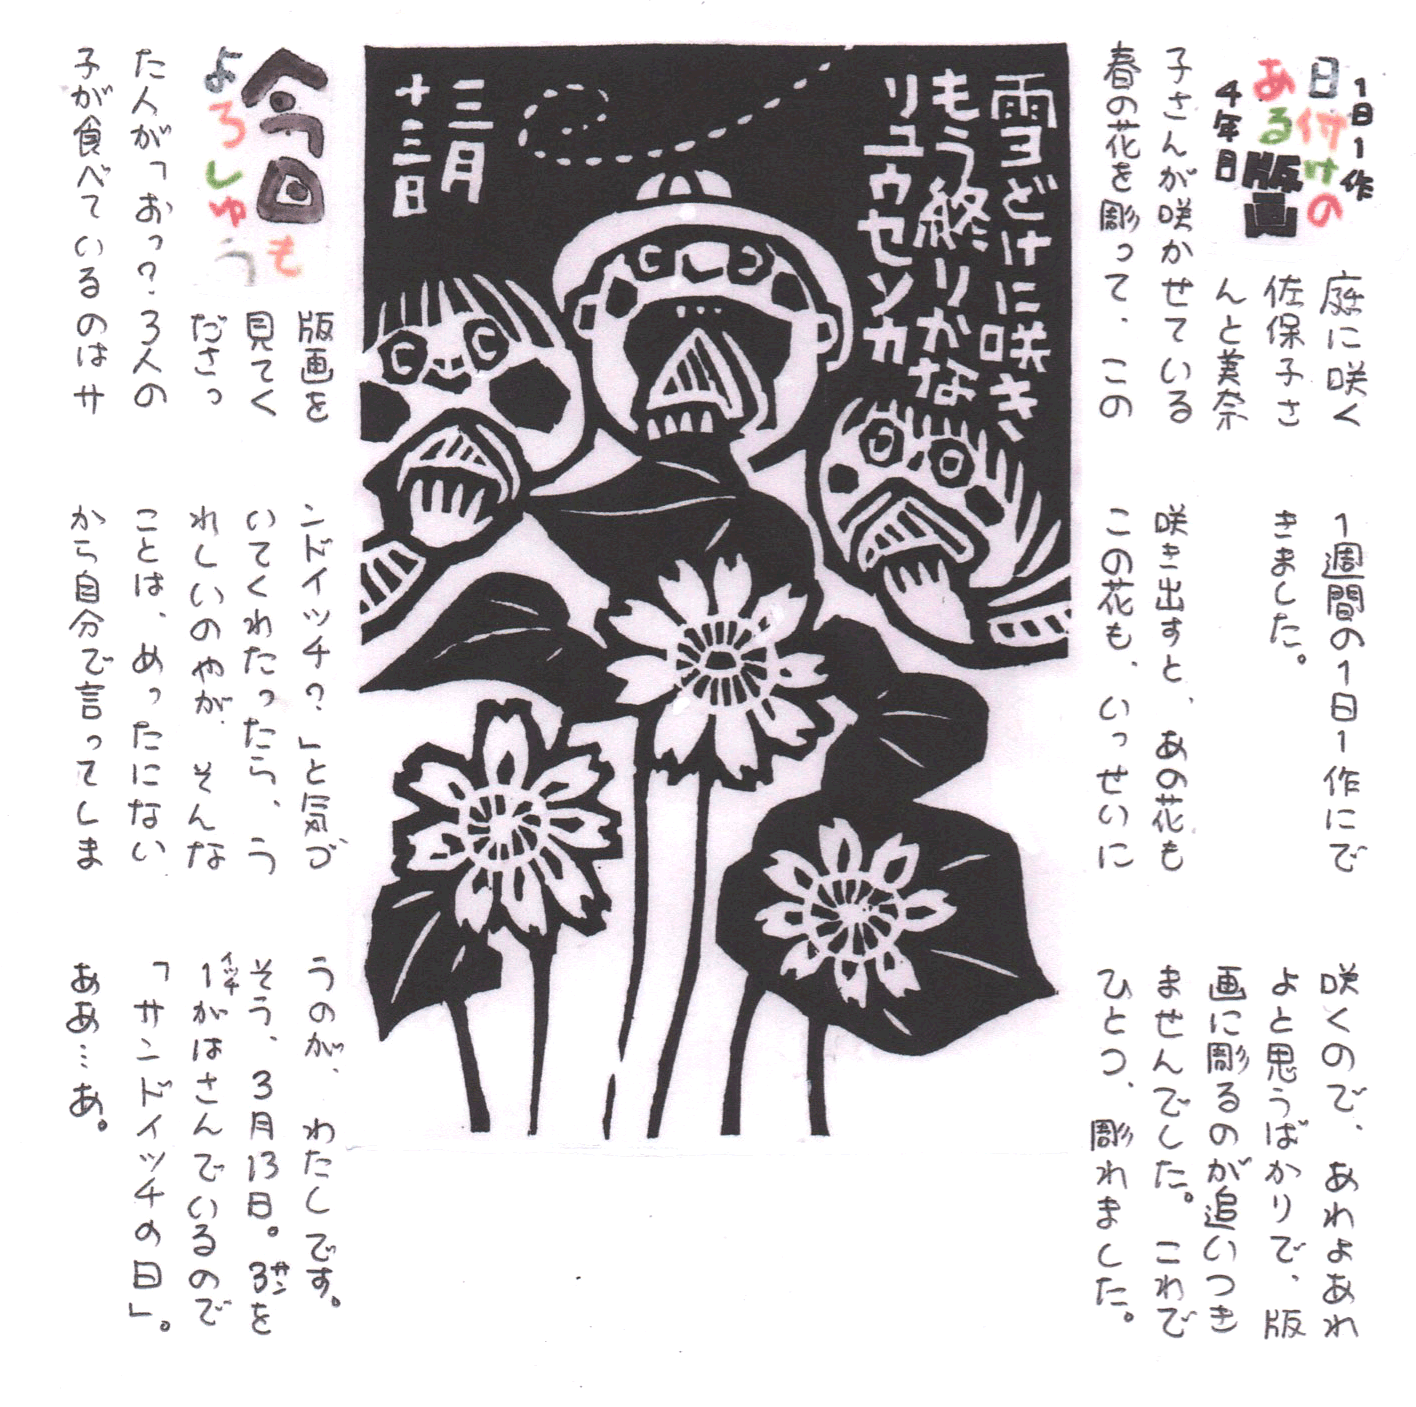 1日1作
日付けの
ある版画
4年目
庭に咲く
佐保子さ
んと美奈
子さんが咲かせている
春の花を彫って、この
1週間の1日1作にで
きました。
咲き出すと、あの花も
この花も、いっせいに
咲くので、あれよあれ
よと思うばかりで、版
画に彫るのが追いつき
ませんでした。これで
ひとつ、彫れました。
雪どけに咲き、
もう終りかな
リュウセンカ
三月
十三日
今回も
よろしゅう
版画を
見てく
ださっ
た人が「おっ?3人の
子が食べているのはサ
ンドイッチ?」と気づ
いてくれたったら、う
れしいのやが、そんな
ことは、めったにない
から自分で言ってしま
うのが、わたしです。
そう、3月13日。3を
サン
1がはさんでいるので
イッチ
「サンドイッチの日」。
ああ…あ。